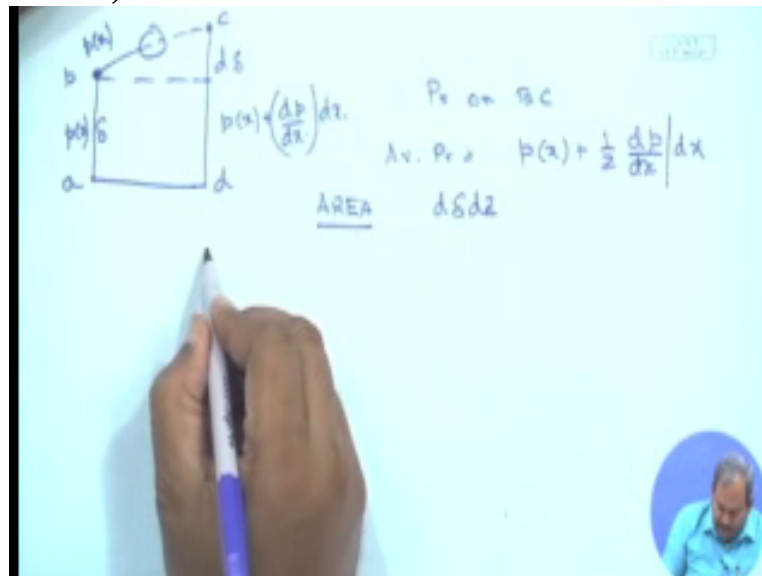 c
p(x)
b
dδ
p(x) δ
p(x) + (dp/dx) dx.
Pr on BC
Av. Pr = p(x) + 1/2 dp/dx | dx
a
d
AREA dδdz